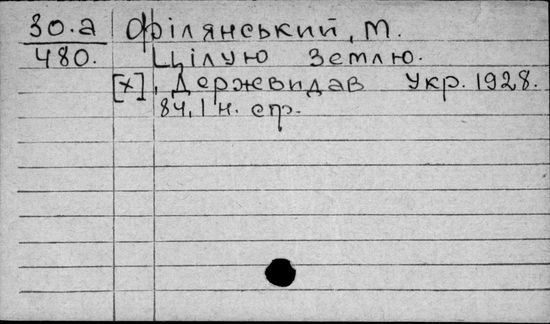 30.а Філянський, М.
480. Цілую Землю.
[х], Держвидав Укр. 1928.
84,1 н. стр.